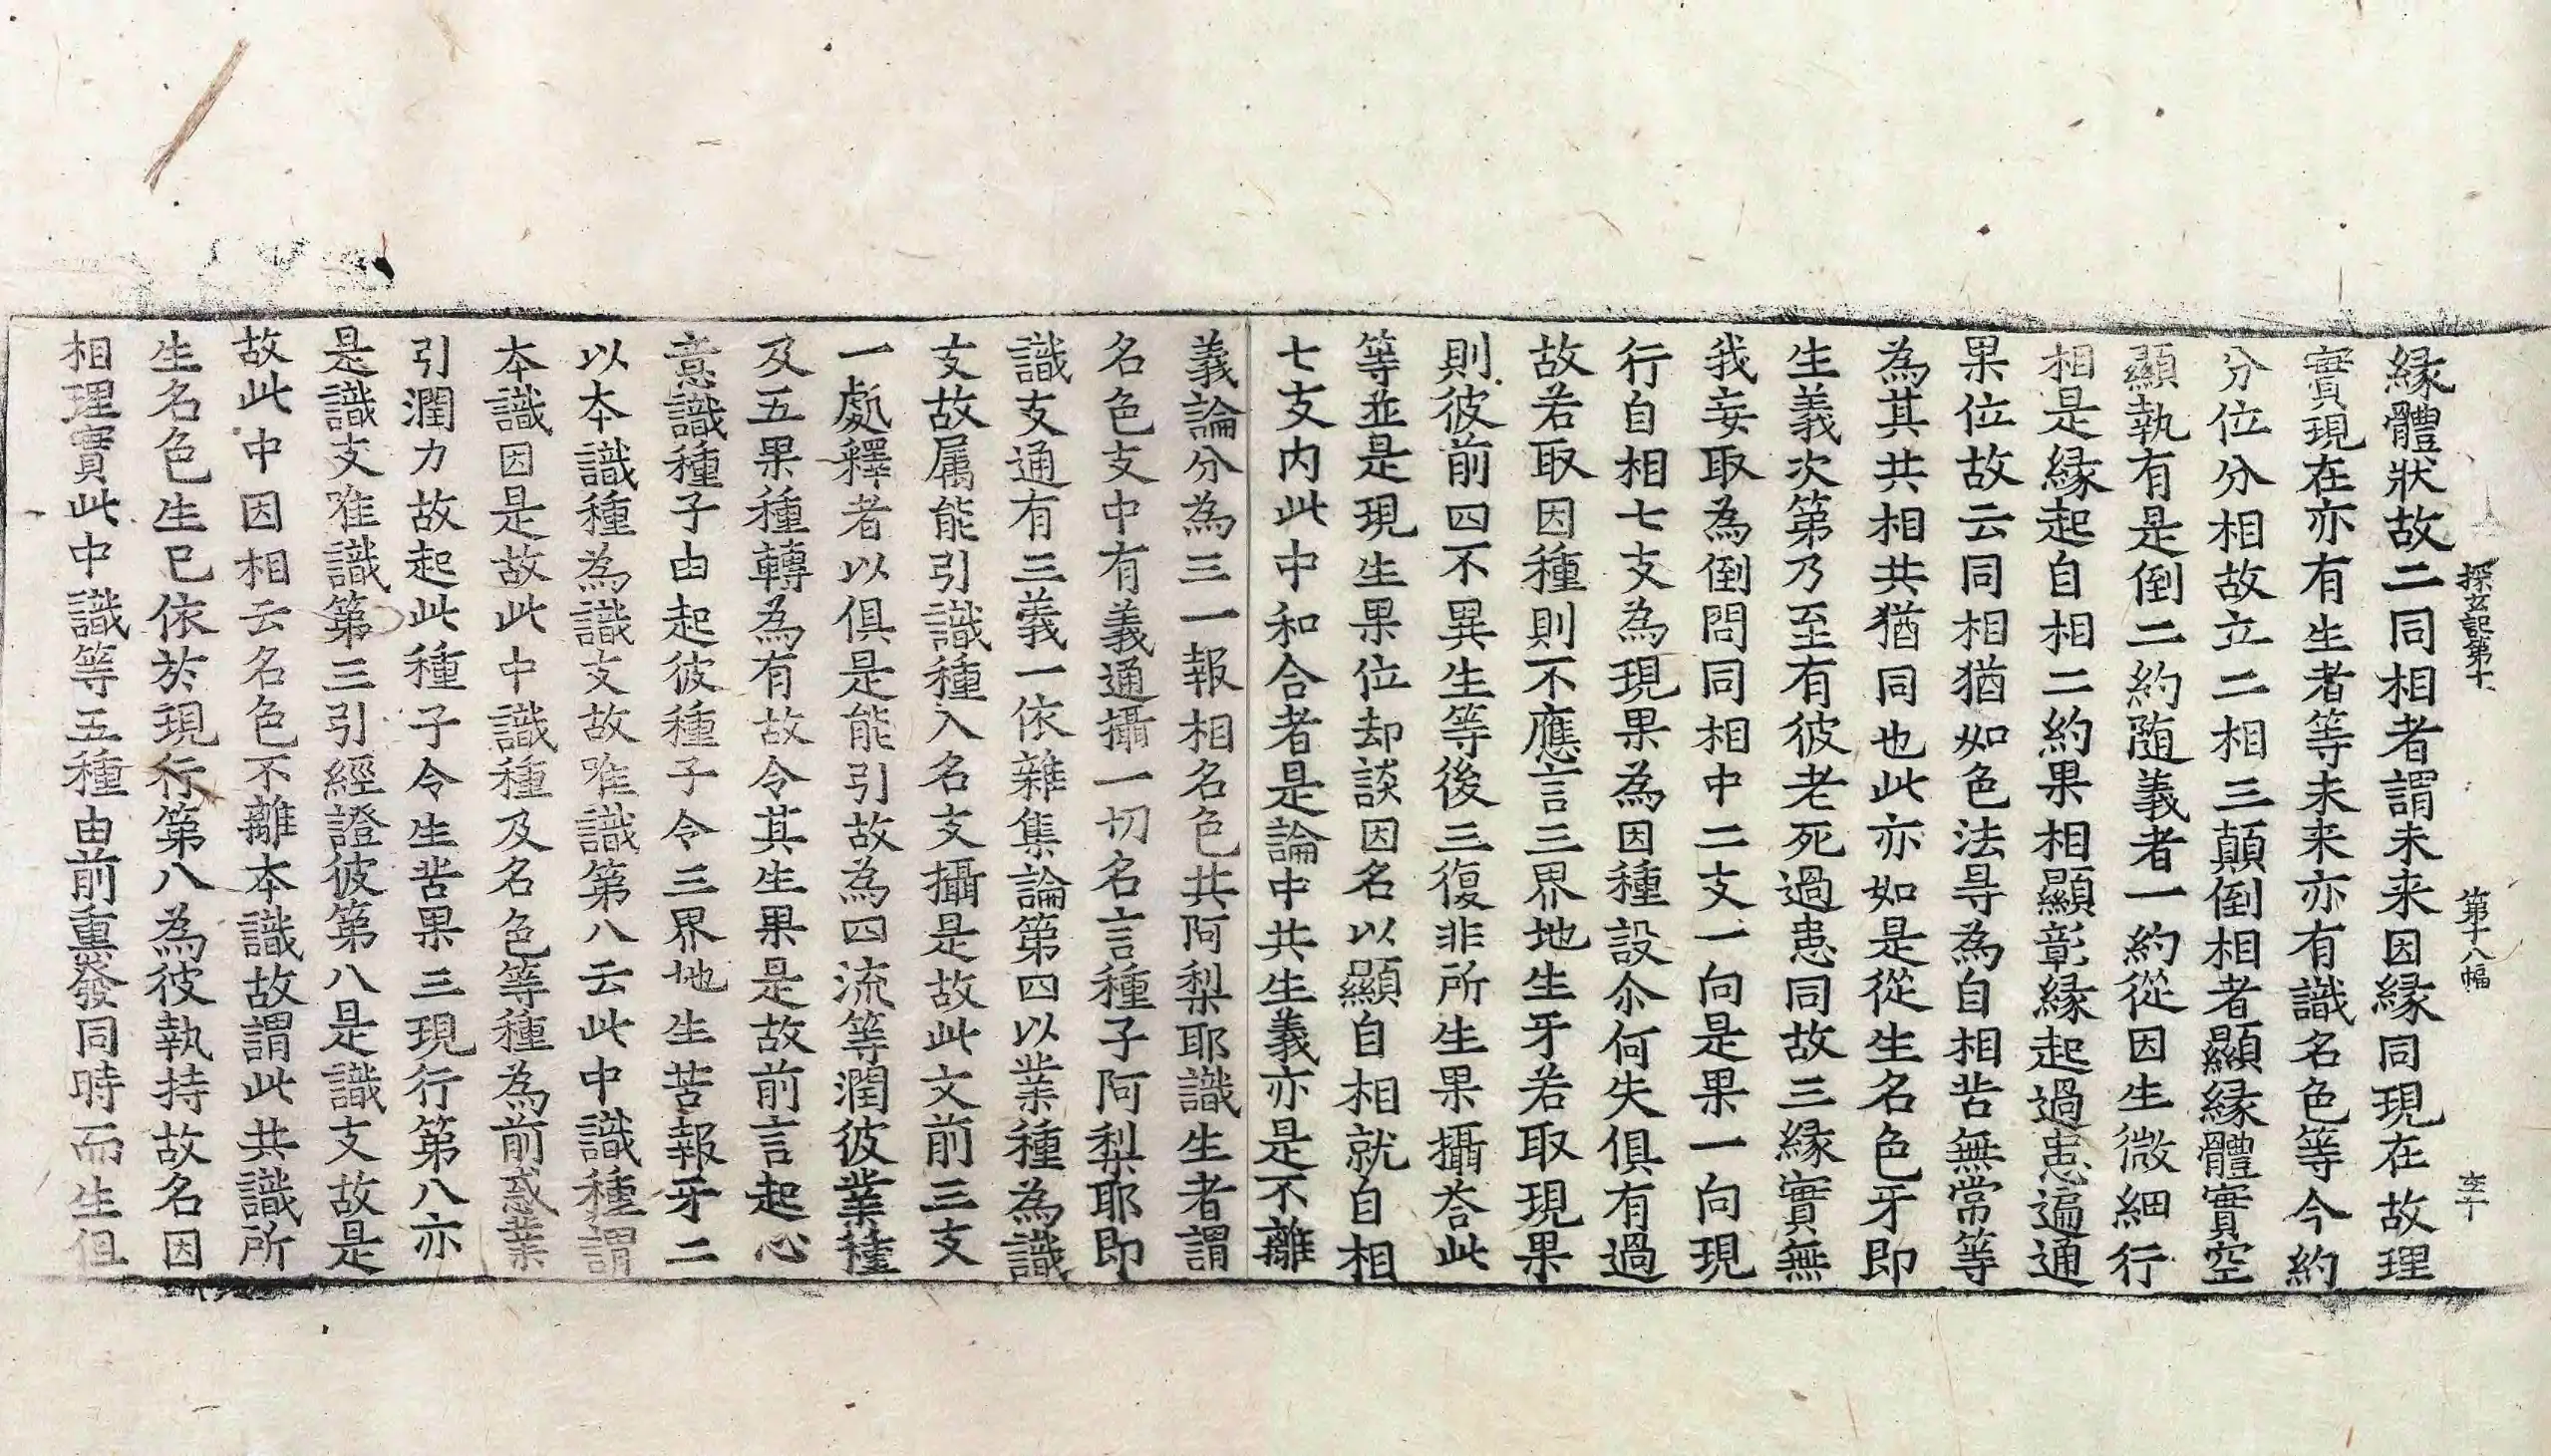 探玄記第十 第十八幅 李
縁體狀故二同相者謂未来因縁同現在故理
實現在亦有生者等未来亦有識名色等今約
分位分相故立二相三顛倒相者顯縁體實空
顯執有是倒二約隨義者一約從因生微細行
相是縁起自相二約果相顯彰縁起過患遍通
果位故云同相猶如色法㝵為自相苦無常等
為其共相共猶同也此亦如是從生名色牙即
生義次第乃至有彼老死過患同故三縁實無
我妄取為倒問同相中二支一向是果一向現
行自相七支為現果為因種設尒何失俱有過
故若取因種則不應言三界地生牙若取現果
則彼前四不異生等後三復非所生果攝荅此
等並是現生果位却談因名以顯自相就自相
七支内此中和合者是論中共生義亦是不離
義論分為三一報相名色共阿梨耶識生者謂
名色支中有義通攝一切名言種子阿梨耶即
識支通有三義一依雜集論第四以業種為識
支故属能引識種入名支攝是故此文前三支
一處釋者以俱是能引故為四流等潤彼業種
及五果種轉為有故令其生果是故前言起心
意識種子由起彼種子令三界地生苦報牙二
以本識種為識支故唯識第八云此中識種謂
本識因是故此中識種及名色等種為前惑業
引潤力故起此種子令生苦果三現行第八亦
是識支唯識第三引經證彼第八是識支故是
故此中因相云名色不離本識故謂此共識所
生名色生已依於現行第八為彼執持故名因
相理實此中識等五種由前重發同時而生但